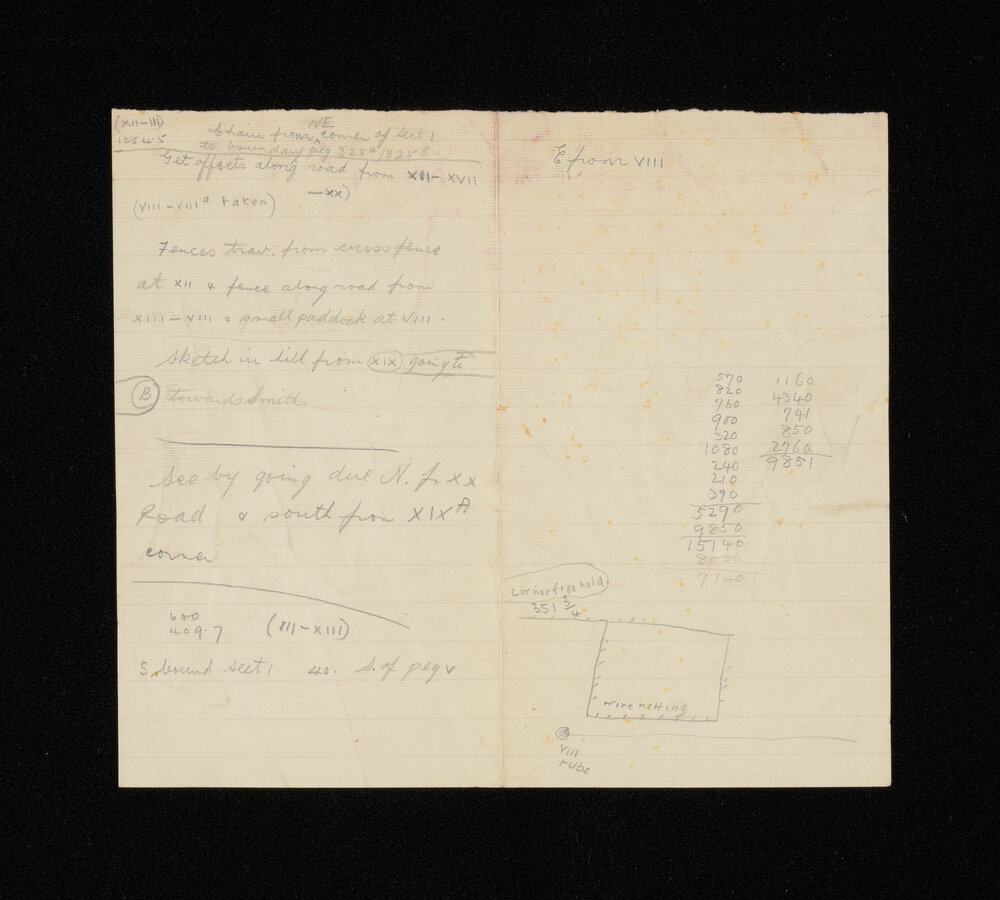 (XII-III)
1054.5
NE
Chain from ^ corner of Sect 1
to boundary peg 325a/325
Get offsets along road from XII-XVII
-XX)
(VIII-VIIIa taken)
Fences trav. from cross fence
at XII & fence along road from
XIII-VIII & small paddock at VIII.
Sketch in hill from XIX going to
B towards Smith
See by going due N. fr XX
Road & south from XIXA
corner
600
409.7 (III-XIII)
S. bound sect 1 40. S. of peg v
E from VIII
570
820
760
900
320
1080
240
210
390
5290
9850
15140
8000
7140
1160
4340
741
850
2760
9851
corner freehold
351 3/4
wire netting
VIII
tube